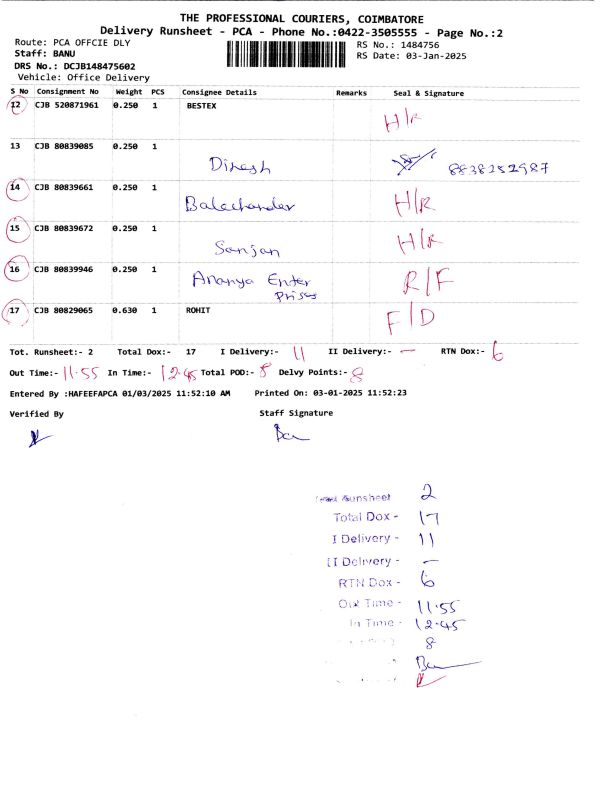 THE PROFESSIONAL COURIERS, COIMBATORE
Delivery Runsheet - PCA - Phone No.:0422-3505555 - Page No.:2
Route: PCA OFFCIE DLY
Staff: BANU
DRS No.: DCJB148475602
Vehicle: Office Delivery
RS No.: 1484756
RS Date: 03-Jan-2025
S No Consignment No Weight PCS Consignee Details Remarks Seal & Signature
12 CJB 520871961 0.250 1 BESTEX H/R
13 CJB 80839085 0.250 1 Dinesh 8838252987
14 CJB 80839661 0.250 1 Balachander H/R
15 CJB 80839672 0.250 1 Sanjan H/R
16 CJB 80839946 0.250 1 Ananya Enter
Prises R/F
17 CJB 80829065 0.630 1 ROHIT F/D
Tot. Runsheet:- 2 Total Dox:- 17 I Delivery:- 11 II Delivery:- — RTN Dox:- 6
Out Time:- 11.55 In Time:- 12.45 Total POD:- 8 Delvy Points:- 8
Entered By :HAFEEFAPCA 01/03/2025 11:52:10 AM Printed On: 03-01-2025 11:52:23
Verified By Staff Signature
Runsheet 2
Total Dox - 17
I Delivery - 11
II Delivery - —
RTN Dox - 6
Out Time - 11.55
In Time - 12.45
8